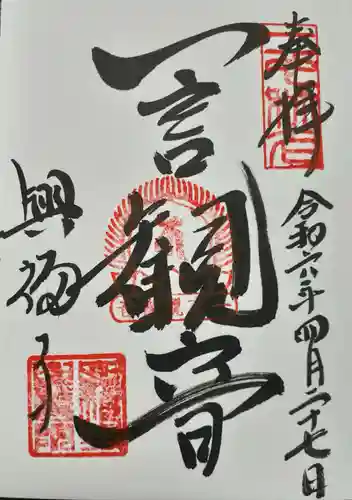 奉拝
令和六年四月二十七日
一言観音
興福寺